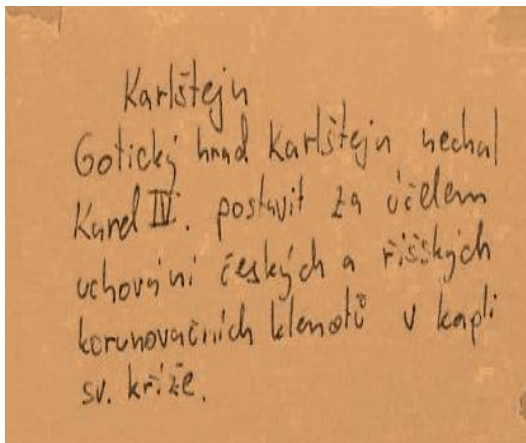 Karlštejn
Gotický hrad Karlštejn nechal
Karel IV. postavit za účelem
uchování českých a říšských
korunovačních klenotů v kapli
sv. kříže.